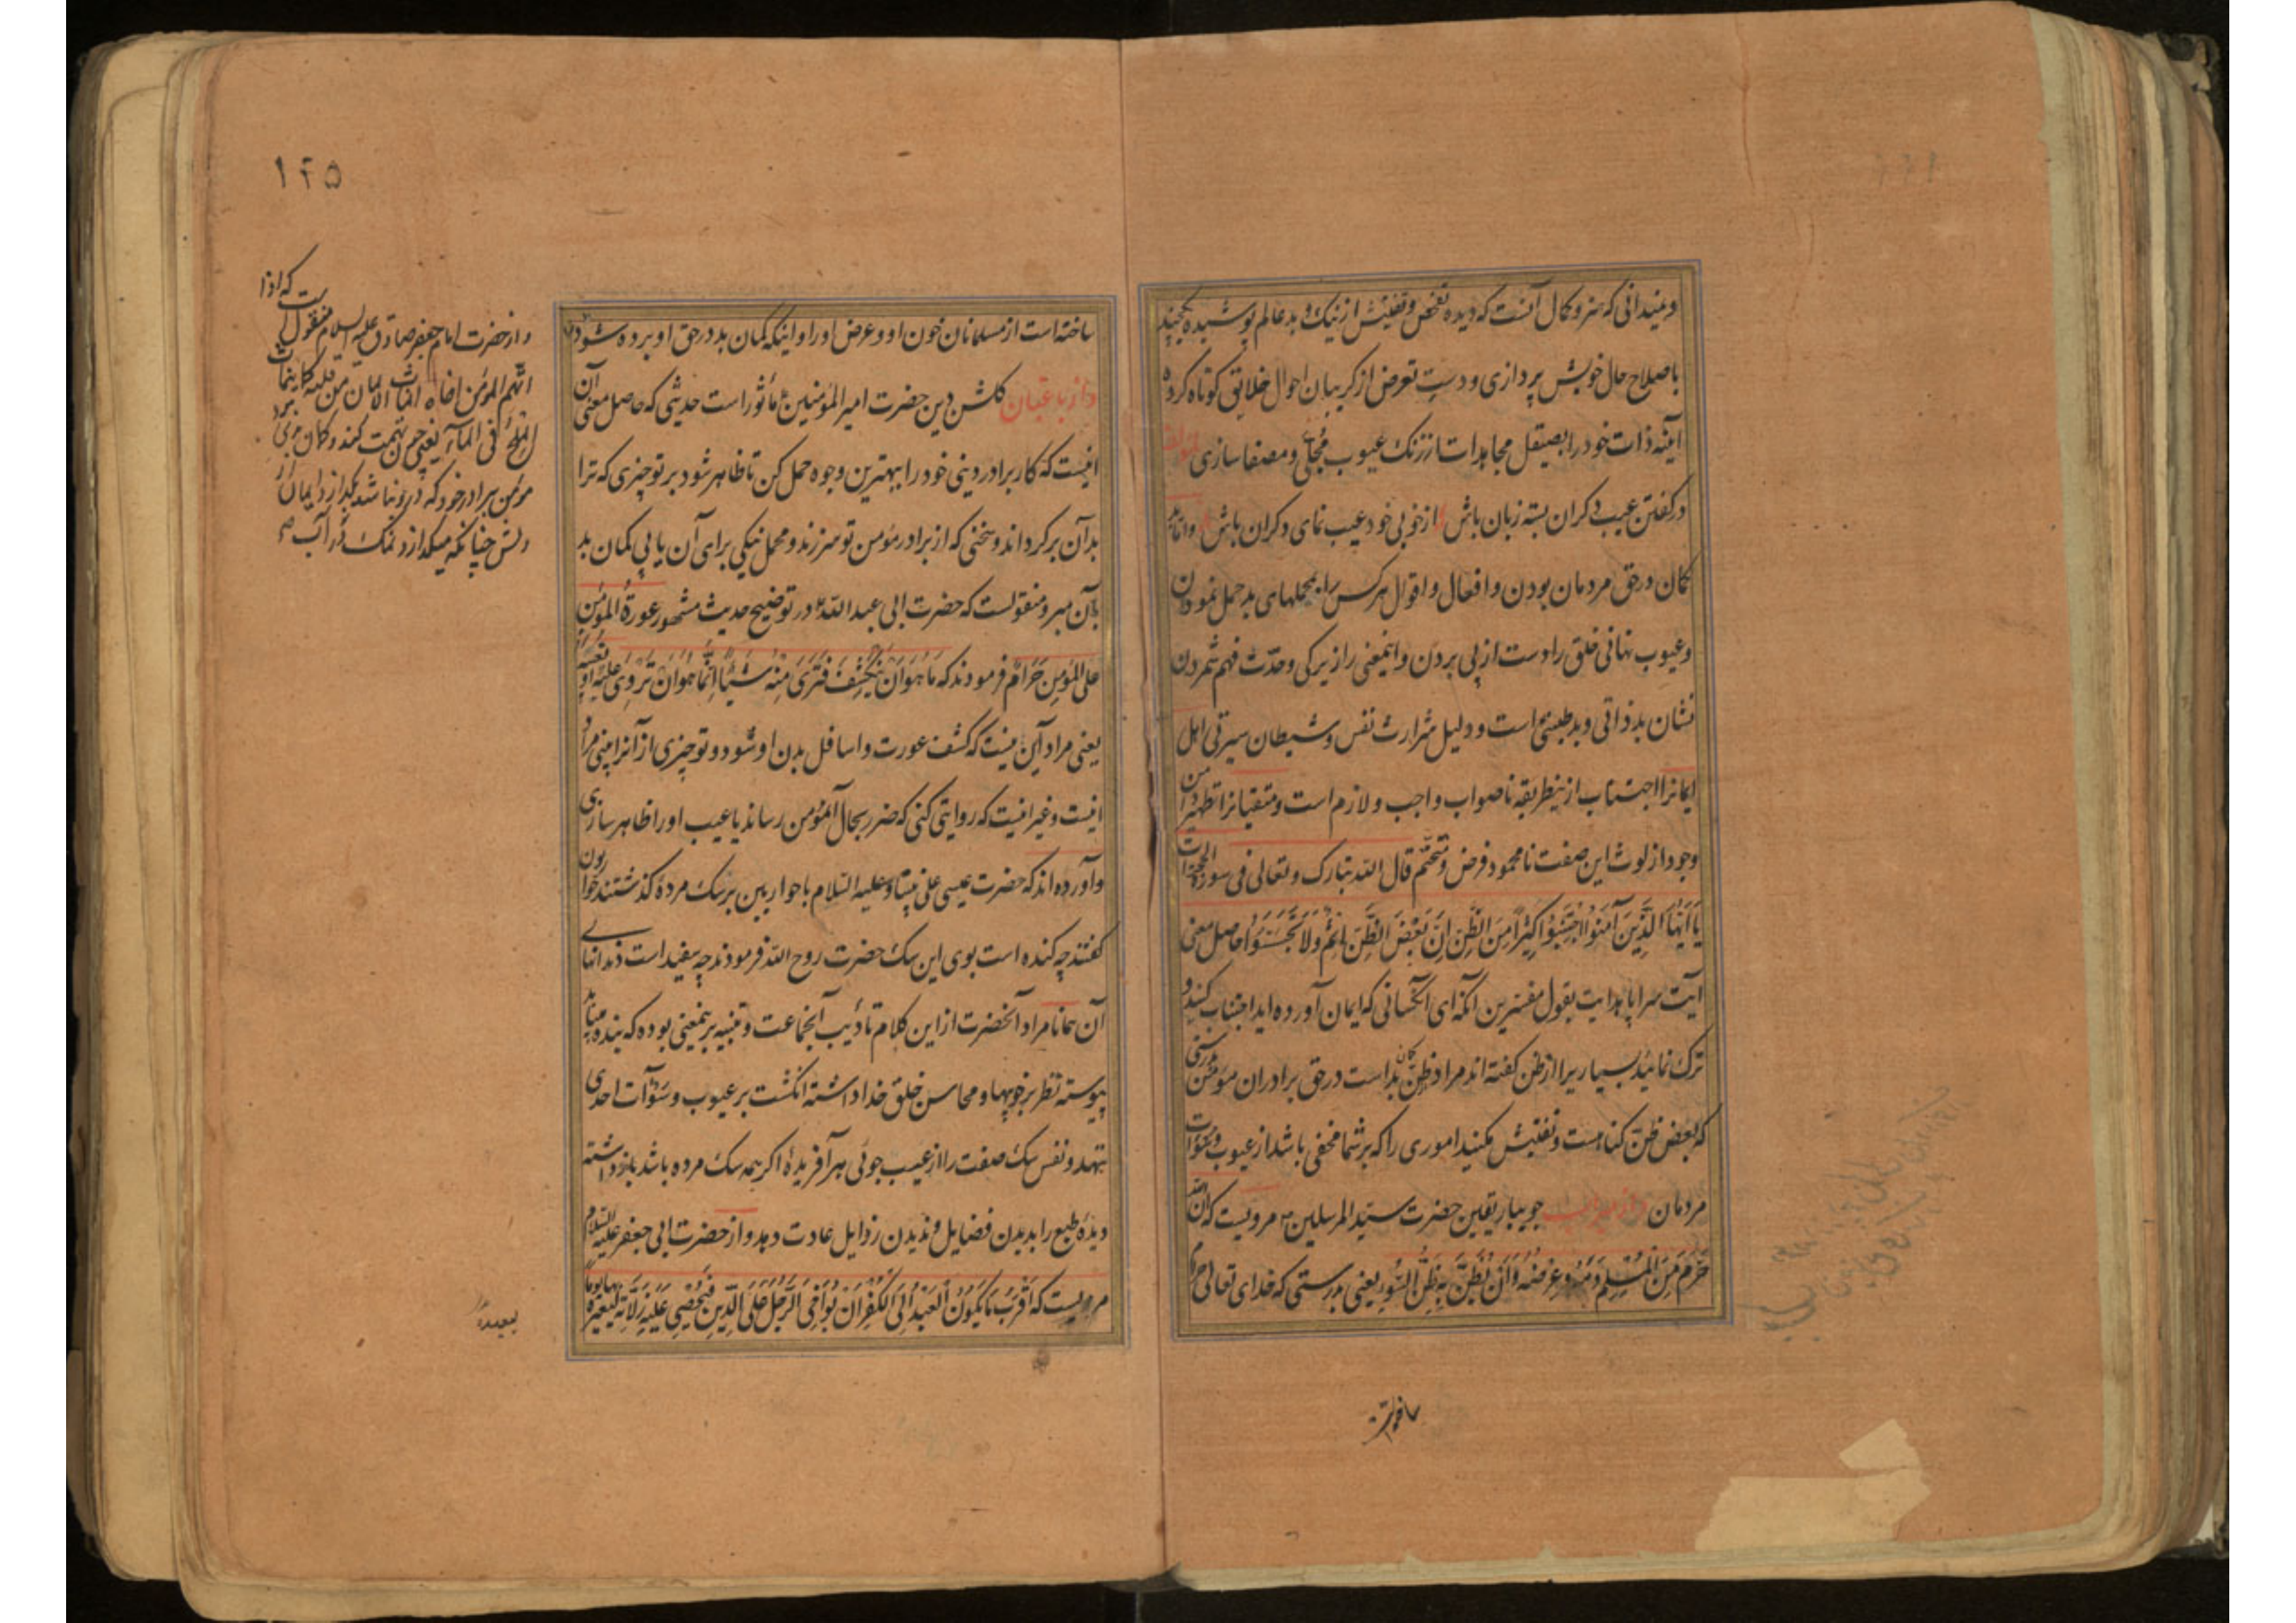 و نمیدانی که هنر و کمال آنست که دیده تفحص و تفتیش از نیک و بد عالم پوشیده بحسنه
باصلاح حال خویش پردازی و دست تعرض از گریبان احوال خلایق کوتاه کرده
آینه ذات خود را بصیقل مجاهدات از زنک عیوب مجلّی و مصفا سازی
در کفتن عیب دکران بسته زبان باش از خوبی خود عیب نمای دکران باش و اما بد
کمان در حق مردمان بودن و افعال و اقوال هر کس را بمحملهای بد حمل نمودن
و عیوب نهانی خلق را دست از پی بردن و اینمعنی را زیرکی وحدّت فهم شمردن
نشان بدذاتی و بدطینتی است و دلیل شرارت نفس و شیطان سیرتی اهل
ایمانرا اجتناب از ینطریقه ناصواب واجب و لازم است و متقیانرا تطهیر دامن
وجود از لوث این صفت نامحمود فرض و متحتّم قال اللّه تبارک و تعالی فی سورة الحجرات
یَا اَیُّهَا الَّذِینَ آمَنُوا اجْتَنِبُوا کَثِیرًا مِنَ الظَّنِّ اِنَّ بَعْضَ الظَّنِّ اِثْمٌ وَلَا تَجَسَّسُوا حاصل معنی
آیت سراپا هدایت بقول مفسرین آنکه ای آنکسانی که ایمان آورده اید اجتناب کنید و
ترک نمائید بسیاریرا از ظن کفته اند مراد ظنّ کمان بد است در حق برادران مؤمن بدرستی
که بعض ظنّ کناهست و تفتیش مکنید اموری را که بر شما مخفی باشد از عیوب و
مردمان و از جویبار یقین حضرت سیّد المرسلین ص مرویست که ان اللّه
حَرَّمَ مِنَ الْمُسْلِمِ دَمَهُ وَ عِرْضَهُ وَ اَنْ یُظَنَّ بِهِ ظَنَّ السَّوْءِ یعنی بدرستی که خدای تعالی حرام
ساخته
۱۲۵
ساخته است از مسلمانان خون او و عرض او را و اینکه کمان بد در حق او برده شود
و از باغبان کلشن دین حضرت امیر المؤمنین ع مأثور است حدیثی که حاصل معنی آن
اینست که کار برادر دینی خود را ببهترین وجوه حمل کن تا ظاهر شود بر تو چیزی که ترا
بدان برکرداند و سخنی که از برادر مؤمن تو سرزند و محمل نیکی برای آن یابی کمان بد
بآن مبر و منقولست که حضرت ابی عبد اللّه ع در توضیح حدیث مشهور عَوْرَةُ المُؤْمِنِ
عَلَی المُؤمِنِ حَرَامٌ فرمودند که مَا هُوَ اَنْ یَنْکَشِفَ فَتَرَی مِنْهُ شَیْئًا اِنَّمَا هُوَ اَنْ تَرْوِیَ عَلَیْهِ اَوْ تَعِیبَهُ
یعنی مراد این نیست که کشف عورت و اسافل بدن او شود و تو چیزی از آنرا بینی مراد
اینست و غیر این نیست که روایتی کنی که ضرر بحال آنمؤمن رساند یا عیب او را ظاهر سازی
و آورده اند که حضرت عیسی علی نبینا و علیه السّلام با حواریین بر سک مرده کذشتند حواریون
کفتند چه کنده است بوی این سک حضرت روح اللّه فرمودند چه سفید است دندانهای
آن همانا مراد آنحضرت از این کلام تأدیب آنجماعت و تنبیه بر ینمعنی بوده که بنده میباید
پیوسته نظر بر خوبیها و محاسن خلق خدا داشته انکشت بر عیوب و سوآت احدی
ننهد و نفس سک صفت را از عیب جوئی هر آفریده اکر همه سک مرده باشد باز داشته
دیده طبع را بدیدن فضایل و ندیدن رذایل عادت دهد و از حضرت ابی جعفر علیه السلام
مرویست که اَقْرَبُ مَا یَکُونُ الْعَبْدُ اِلَی الْکُفْرِ اَنْ یُوَاخِیَ الرَّجُلَ عَلَی الدِّینِ فَیُحْصِیَ عَلَیْهِ زَلَّاتِهِ لِیُعَیِّرَهُ بِهَا یَوْمًا
و از حضرت امام جعفر صادق علیه السلام منقولست که اذا
اتّهم المؤمن اخاه انماث الایمان من قلبه کما ینماث
الملح فی الماء یعنی چون تهمت کند و کمان برد
مؤمن ببرادر خود که در و نباشد بکدازد ایمان از
دلش چنانکه میکدازد نمک در آب